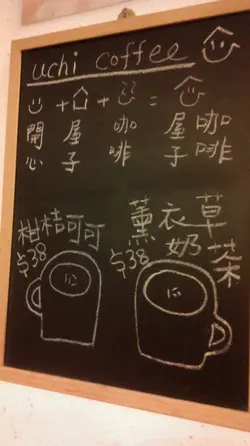 uchi coffee
☺ + ⌂ + = 
開心 屋子 咖啡 屋子咖啡
柑桔可可
$38
薰衣草奶茶
$38